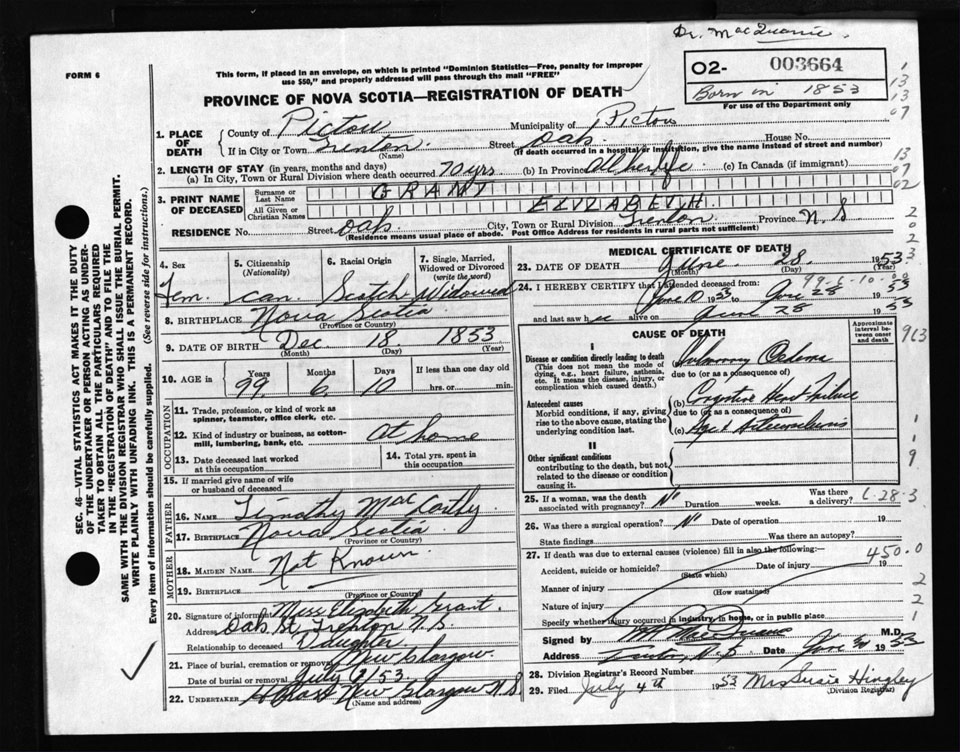 Dr. MacQuarrie.
FORM 6
This form, if placed in an envelope, on which is printed "Dominion Statistics—Free, penalty for improper
use $50," and properly addressed will pass through the mail "FREE"
O2- 003664
Born in 1853
For use of the Department only
PROVINCE OF NOVA SCOTIA—REGISTRATION OF DEATH
1. PLACE OF DEATH
County of Pictou Municipality of Pictou
If in City or Town Trenton. Street Oak House No.
(Name) (If death occurred in a hospital or institution, give the name instead of street and number)
2. LENGTH OF STAY (in years, months and days)
(a) In City, Town or Rural Division where death occurred 70 yrs (b) In Province All her life. (c) In Canada (if immigrant)
3. PRINT NAME OF DECEASED
Surname or Last Name GRANT
All Given or Christian Names ELIZABETH
RESIDENCE No. Street Oak City, Town or Rural Division Trenton. Province N.S
(Residence means usual place of abode. Post Office Address for residents in rural parts not sufficient)
4. Sex Fem.
5. Citizenship (Nationality) Can.
6. Racial Origin Scotch
7. Single, Married, Widowed or Divorced (write the word) Widowed
8. BIRTHPLACE Nova Scotia
(Province or Country)
9. DATE OF BIRTH Dec. 18. 1853
(Month) (Day) (Year)
10. AGE in Years 99 Months 6 Days 10 If less than one day old
hrs. or min.
OCCUPATION
11. Trade, profession, or kind of work as spinner, teamster, office clerk, etc.
12. Kind of industry or business, as cotton-mill, lumbering, bank, etc. At home
13. Date deceased last worked at this occupation
14. Total yrs. spent in this occupation
15. If married give name of wife or husband of deceased
FATHER
16. NAME Timothy MacCarthy
17. BIRTHPLACE Nova Scotia
(Province or Country)
MOTHER
18. MAIDEN NAME Not Known.
19. BIRTHPLACE
(Province or Country)
20. Signature of informant Miss Elizabeth Grant.
Address Oak St. Trenton N.S.
Relationship to deceased Daughter
21. Place of burial, cremation or removal New Glasgow.
Date of burial or removal July 1/53
22. UNDERTAKER New Glasgow N.S
(Name and address)
MEDICAL CERTIFICATE OF DEATH
23. DATE OF DEATH June 28. 1953
(Month) (Day)
99-6-10
24. I HEREBY CERTIFY that I attended deceased from:
June 10 1953 to June 28 1953
and last saw her alive on June 28 1953
CAUSE OF DEATH
Approximate interval between onset and death
I
Disease or condition directly leading to death
(This does not mean the mode of dying, e.g., heart failure, asthenia, etc. It means the disease, injury, or complication which caused death.)
(a) Pulmonary Oedema
due to (or as a consequence of)
Antecedent causes
Morbid conditions, if any, giving rise to the above cause, stating the underlying condition last.
(b) Congestive Heart Failure
due to (or as a consequence of)
(c) Age & Arteriosclerosis
II
Other significant conditions
contributing to the death, but not related to the disease or condition causing it.
25. If a woman, was the death associated with pregnancy? No Duration weeks. Was there a delivery?
6-28-3
26. Was there a surgical operation? No Date of operation 19
State findings Was there an autopsy?
27. If death was due to external causes (violence) fill in also the following:
450.0
Accident, suicide or homicide? Date of injury 19
(State which)
Manner of injury
(How sustained)
Nature of injury
Specify whether injury occurred in industry, in home, or in public place
Signed by M.D.
Address Trenton, N.S Date June 30 1953
28. Division Registrar's Record Number
29. Filed July 4th 1953 Mrs Susie Hingley
(Division Registrar)
SEC. 46—VITAL STATISTICS ACT MAKES IT THE DUTY
OF THE UNDERTAKER OR PERSON ACTING AS UNDER-
TAKER TO OBTAIN ALL THE PARTICULARS REQUIRED
IN THE "REGISTRATION OF DEATH" AND TO FILE THE
SAME WITH THE DIVISION REGISTRAR WHO SHALL ISSUE THE BURIAL PERMIT.
WRITE PLAINLY WITH UNFADING INK. THIS IS A PERMANENT RECORD.
Every item of information should be carefully supplied. (See reverse side for instructions.)
1
13
13
07
13
07
02
2
0
2
3
963
1
1
9
2
2
1